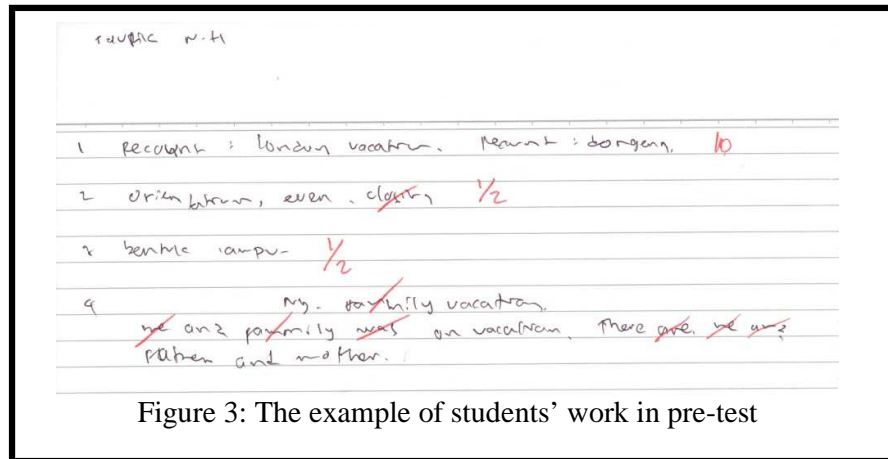 Taufic N.H
1 Recount : London vacation. : dongeng. 10
2 orientation, even, closing 1/2
3 bentuk lampu- 1/2
4 My fammily vacation.
me and fammily was on vacation. There are me and
father and mother.
Figure 3: The example of students' work in pre-test